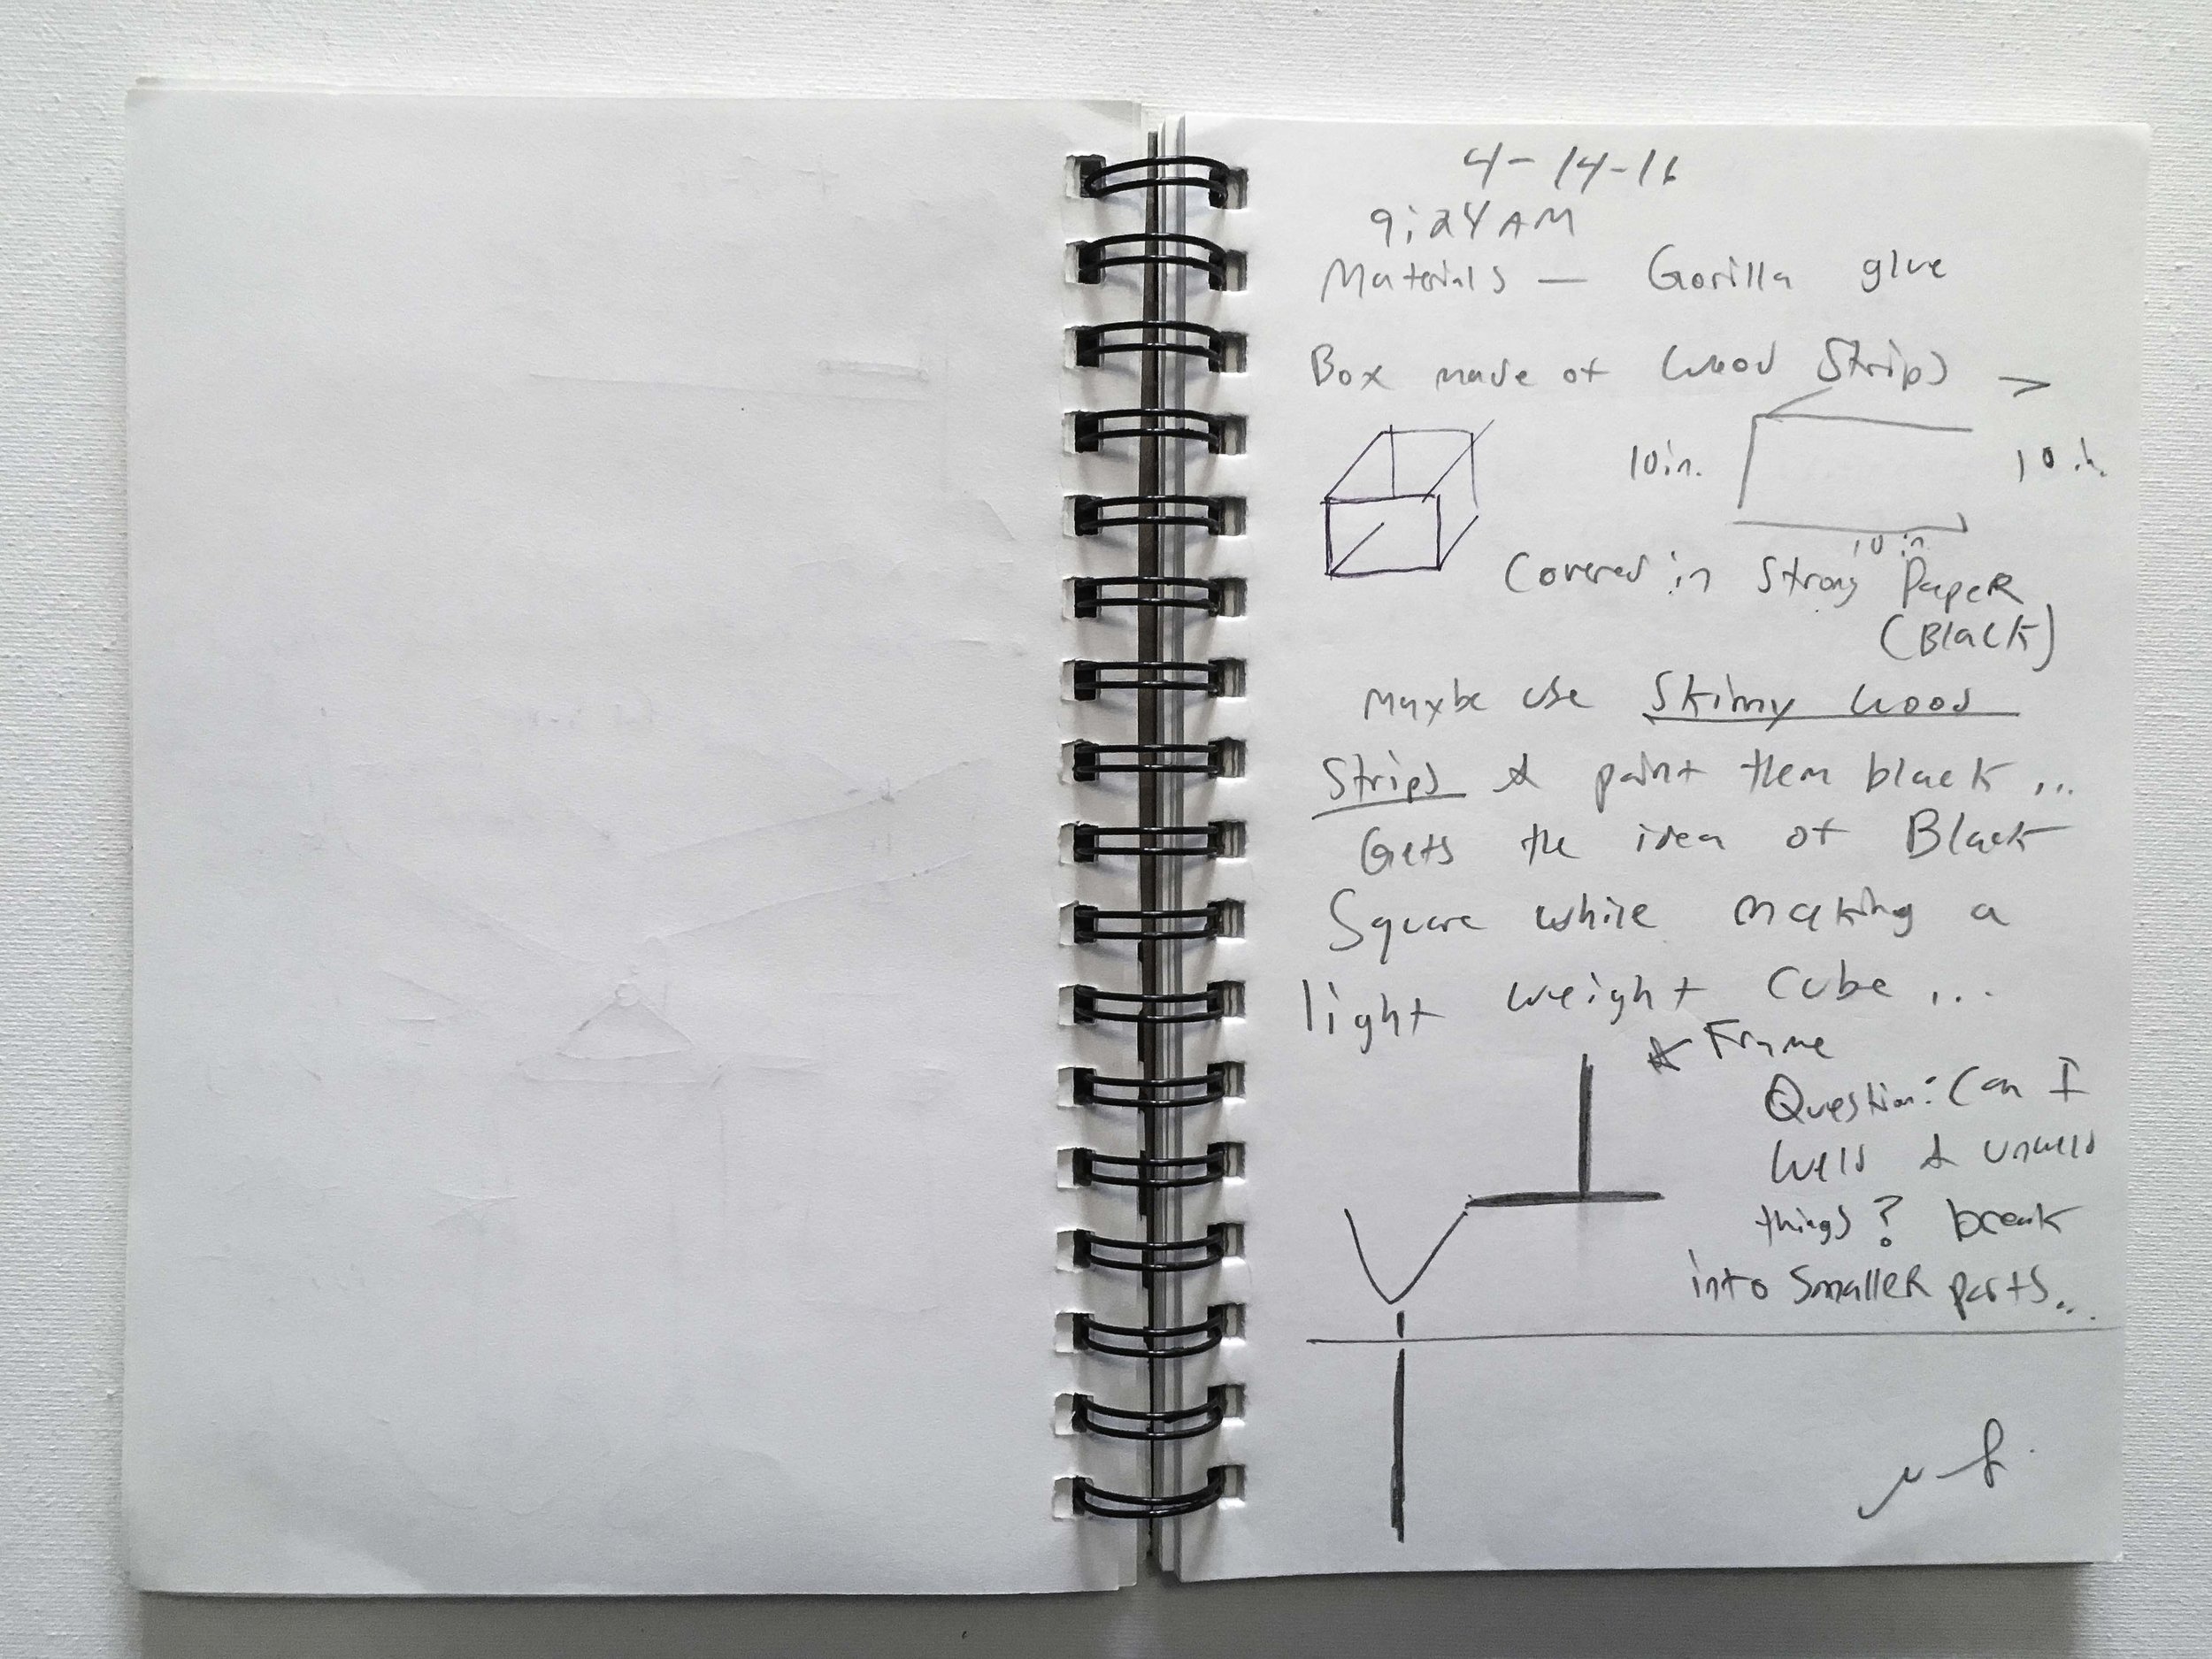 4-14-16
9:24 AM
Materials — Gorilla glue
Box made of wood strips >
10 in.
10 in.
10 in
Covered in strong PapeR
(Black)
Maybe use Skinny wood
Strips & paint them black ...
Gets the idea of Black
Square while making a
light weight cube ...
* Frame
Question: Can I
weld & unweld
things? break
into smalleR parts...